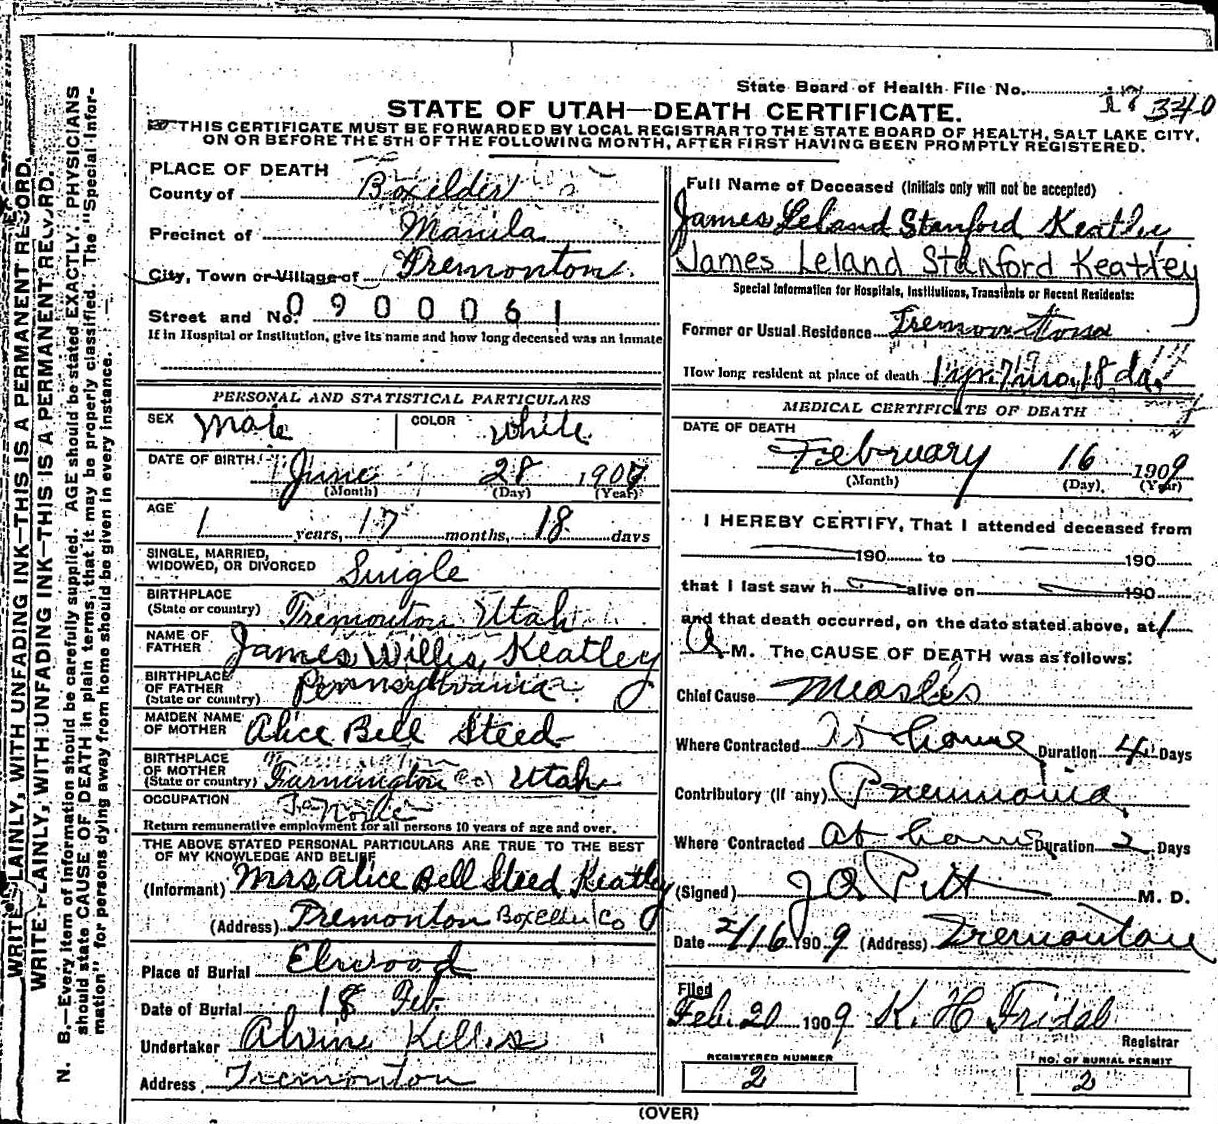 State Board of Health File No. 340
STATE OF UTAH—DEATH CERTIFICATE.
THIS CERTIFICATE MUST BE FORWARDED BY LOCAL REGISTRAR TO THE STATE BOARD OF HEALTH, SALT LAKE CITY,
ON OR BEFORE THE 5TH OF THE FOLLOWING MONTH, AFTER FIRST HAVING BEEN PROMPTLY REGISTERED.
PLACE OF DEATH
County of Boxelder
Precinct of Manila
City, Town or Village of Tremonton.
Street and No. 0900061
If in Hospital or Institution, give its name and how long deceased was an inmate
PERSONAL AND STATISTICAL PARTICULARS
SEX Male COLOR White
DATE OF BIRTH June 28 1907
(Month) (Day) (Year)
AGE 1 years, 17 months, 18 days
SINGLE, MARRIED,
WIDOWED, OR DIVORCED Single
BIRTHPLACE
(State or country) Tremonton Utah
NAME OF
FATHER James Willis Keatley
BIRTHPLACE
OF FATHER
(State or country) Pennsylvania
MAIDEN NAME
OF MOTHER Alice Bell Steed
BIRTHPLACE
OF MOTHER
(State or country) Farmington Co Utah
OCCUPATION
Return remunerative employment for all persons 10 years of age and over.
THE ABOVE STATED PERSONAL PARTICULARS ARE TRUE TO THE BEST
OF MY KNOWLEDGE AND BELIEF
(Informant) Mrs Alice Bell Steed Keatley
(Address) Tremonton BoxElder Co
Place of Burial Elwood
Date of Burial 18 Feb.
Undertaker
Address Tremonton
Full Name of Deceased (Initials only will not be accepted)
James Leland Stanford Keatley
James Leland Stanford Keatley
Special Information for Hospitals, Institutions, Transients or Recent Residents:
Former or Usual Residence
How long resident at place of death 1 yr. 7 mo. 18 da.
MEDICAL CERTIFICATE OF DEATH
DATE OF DEATH
February 16 1909
(Month) (Day) (Year)
I HEREBY CERTIFY, That I attended deceased from
190 to 190
that I last saw h alive on 190
and that death occurred, on the date stated above, at 1
A M. The CAUSE OF DEATH was as follows:
Chief Cause Measles
Where Contracted At home Duration 4 Days
Contributory (if any) Pneumonia
Where Contracted at home Duration 2 Days
(Signed) M. D.
Date 2/16 1909 (Address) Tremonton
Filed
Feb. 20 1909 K. H Fridal
Registrar
REGISTERED NUMBER
2
NO. OF BURIAL PERMIT
2
(OVER)
WRITE PLAINLY, WITH UNFADING INK—THIS IS A PERMANENT RECORD.
WRITE PLAINLY, WITH UNFADING INK—THIS IS A PERMANENT RECORD.
N. B.—Every item of information should be carefully supplied. AGE should be stated EXACTLY. PHYSICIANS
should state CAUSE OF DEATH in plain terms, that it may be properly classified. The "Special Infor-
mation" for persons dying away from home should be given in every instance.